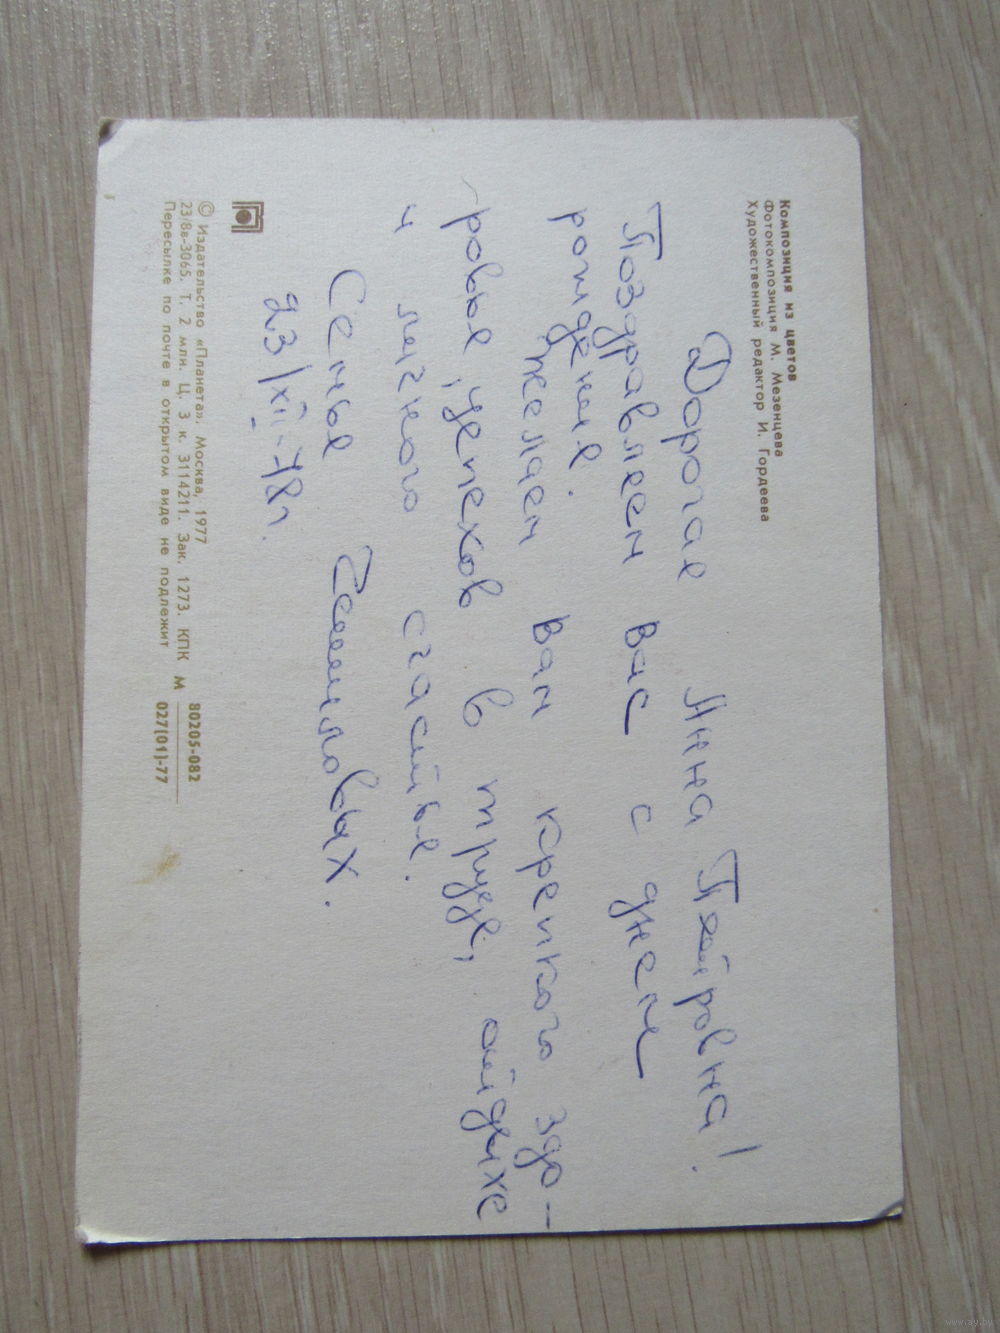 Композиция из цветов
Фотокомпозиция М. Мезенцева
Художественный редактор И. Гордеева
Дорогая Анна Петровна!
Поздравляем Вас с днем
рождения.
Желаем Вам крепкого здо-
ровья, успехов в труде, отдыхе
и личного счастья.
Семья
23/XII-78г.
© Издательство «Планета». Москва, 1977
23/8в-3065. Т. 2 млн. Ц. 3 к. 3114211. Зак. 1273. КПК М 80205-082 027(01)-77
Пересылке по почте в открытом виде не подлежит
www.ay.by